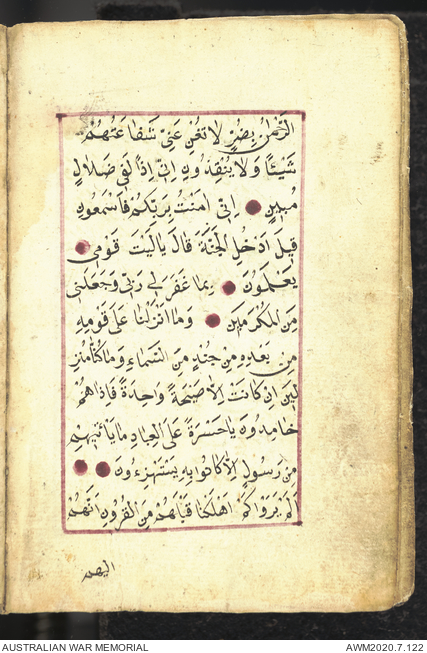 الرَّحْمٰنُ بِضُرٍّ لَا تُغْنِ عَنِّي شَفَاعَتُهُمْ
شَيْئًا وَلَا يُنْقِذُونِ إِنِّي إِذًا لَفِي ضَلَالٍ
مُبِينٍ إِنِّي اٰمَنْتُ بِرَبِّكُمْ فَاسْمَعُونِ
قِيلَ ادْخُلِ الْجَنَّةَ قَالَ يَا لَيْتَ قَوْمِي
يَعْلَمُونَ بِمَا غَفَرَ لِي رَبِّي وَجَعَلَنِي
مِنَ الْمُكْرَمِينَ وَمَا أَنْزَلْنَا عَلَى قَوْمِهِ
مِنْ بَعْدِهِ مِنْ جُنْدٍ مِنَ السَّمَاءِ وَمَا كُنَّا مُنْزِ
لِينَ إِنْ كَانَتْ إِلَّا صَيْحَةً وَاحِدَةً فَإِذَا هُمْ
خَامِدُونَ يَا حَسْرَةً عَلَى الْعِبَادِ مَا يَأْتِيهِمْ
مِنْ رَسُولٍ إِلَّا كَانُوا بِهِ يَسْتَهْزِءُونَ
أَلَمْ يَرَوْا كَمْ أَهْلَكْنَا قَبْلَهُمْ مِنَ الْقُرُونِ أَنَّهُمْ
اليهم
AUSTRALIAN WAR MEMORIAL AWM2020.7.122